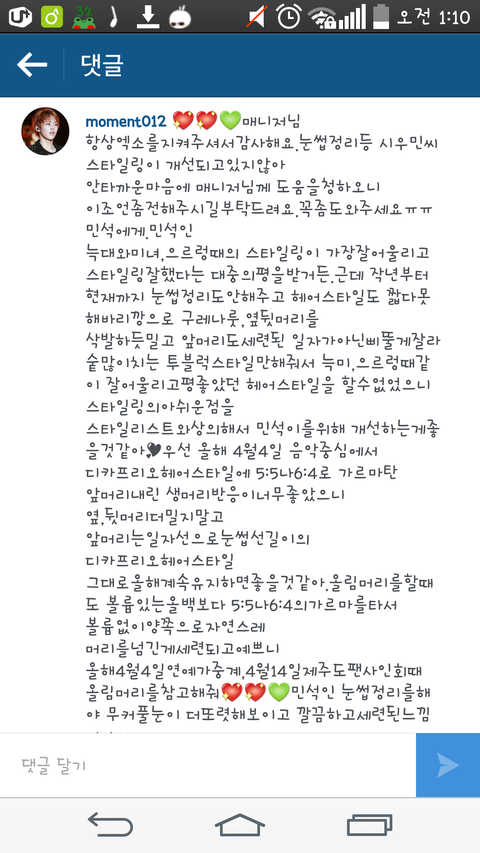 32
오전 1:10
댓글
moment012 💖💖💚매니저님
항상엑소를지켜주셔서감사해요.눈썹정리등 시우민씨
스타일링이 개선되고있지않아
안타까운마음에 매니저님께 도움을청하오니
이조언좀전해주시길부탁드려요.꼭좀도와주세요ㅠㅠ
민석에게.민석인
늑대와미녀,으르렁때의 스타일링이 가장잘어울리고
스타일링잘했다는 대중의평을받거든.근데 작년부터
현재까지 눈썹정리도안해주고 헤어스타일도 짧다못
해바리깡으로 구레나룻,옆뒷머리를
삭발하듯밀고 앞머리도세련된 일자가아닌삐뚤게잘라
숱많이치는 투블럭스타일만해줘서 늑미,으르렁때같
이 잘어울리고평좋았던 헤어스타일을 할수없었으니
스타일링의아쉬운점을
스타일리스트와상의해서 민석이를위해 개선하는게좋
을것같아💘우선 올해 4월4일 음악중심에서
디카프리오헤어스타일에 5:5나6:4로 가르마탄
앞머리내린 생머리반응이너무좋았으니
옆,뒷머리더밀지말고
앞머리는일자선으로눈썹선길이의
디카프리오헤어스타일
그대로올해계속유지하면좋을것같아.올림머리를할때
도 볼륨있는올백보다 5:5나6:4의가르마를타서
볼륨없이양쪽으로자연스레
머리를넘긴게세련되고예쁘니
올해4월4일연예가중계,4월14일제주도팬사인회때
올림머리를참고해줘💖💖💚민석인 눈썹정리를해
야 무커풀눈이 더또렷해보이고 깔끔하고세련된느낌
댓글 달기